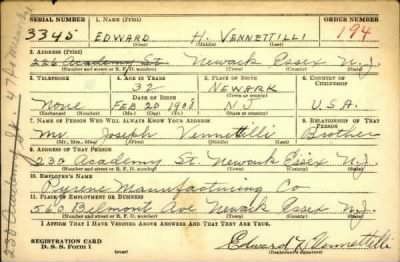 SERIAL NUMBER 1. NAME (Print) ORDER NUMBER
3345 EDWARD H. VENNETTILLI 194
(First) (Middle) (Last)
2. ADDRESS (Print)
226 Academy St. Newark Essex N.J.
(Number and street or R. F. D. number) (Town) (County) (State)
3. TELEPHONE 4. AGE IN YEARS 5. PLACE OF BIRTH 6. COUNTRY OF CITIZENSHIP
32 NEWARK
DATE OF BIRTH (Town or county)
None FEB 20 1908 N J U.S.A.
(Exchange) (Number) (Mo.) (Day) (Yr.) (State or country)
7. NAME OF PERSON WHO WILL ALWAYS KNOW YOUR ADDRESS 8. RELATIONSHIP OF THAT PERSON
Mr Joseph Vennettilli Brother
(Mr., Mrs., Miss) (First) (Middle) (Last)
9. ADDRESS OF THAT PERSON
230 Academy St. Newark Essex N.J.
(Number and street or R. F. D. number) (Town) (County) (State)
10. EMPLOYER'S NAME
Pyrene Manufacturing Co
11. PLACE OF EMPLOYMENT OR BUSINESS
560 Belmont Ave Newark Essex N.J.
(Number and street or R. F. D. number) (Town) (County) (State)
I AFFIRM THAT I HAVE VERIFIED ABOVE ANSWERS AND THAT THEY ARE TRUE.
REGISTRATION CARD
D. S. S. Form 1 (over) Edward H Vennettilli
(Registrant's signature)
230 Academy St.